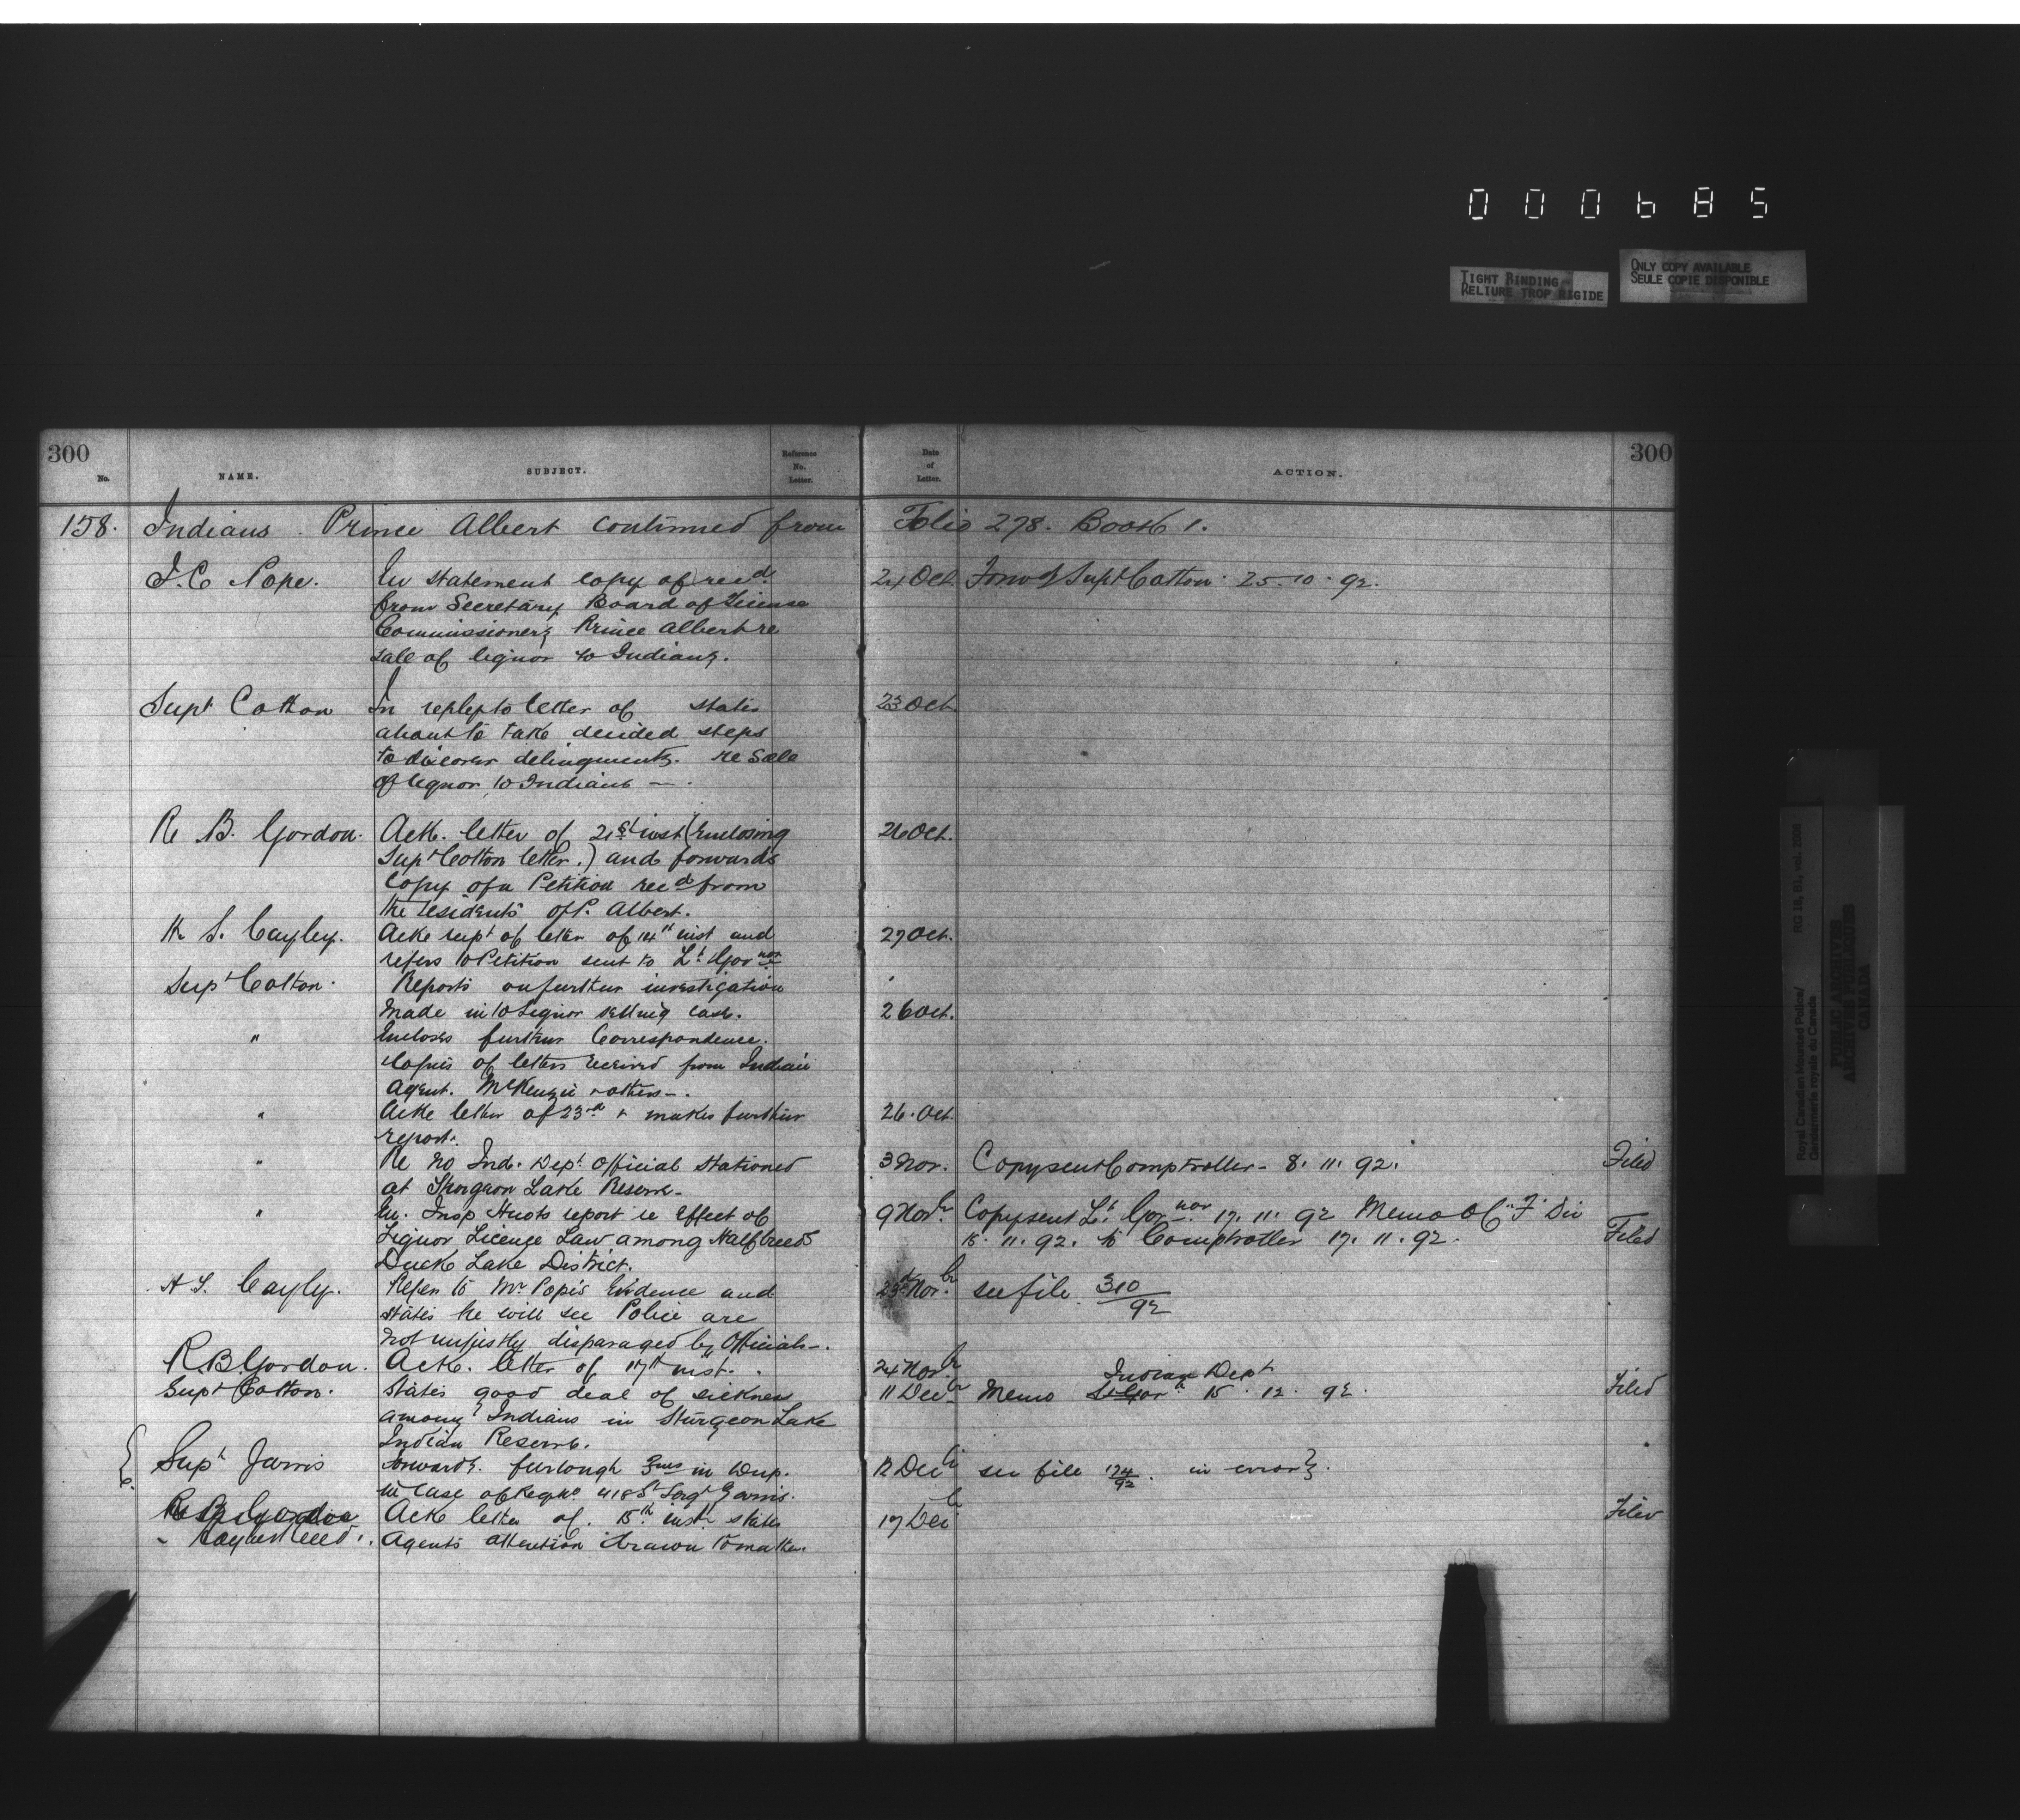 000685
TIGHT BINDING
RELIURE TROP RIGIDE
ONLY COPY AVAILABLE
SEULE COPIE DISPONIBLE
300
No.
NAME.
SUBJECT.
Reference
No.
Letter.
Date
of
Letter.
ACTION.
300
158. Indians. Prince Albert continued from Folio 278. Book 1.
J.C. Pope. En statement copy of recd. 24 Oct Forwd Supt Cotton. 25.10.92.
from Secretary Board of License
Commissioners Prince Albert re
sale of liquor to Indians.
Supt Cotton In reply to letter of states 23 Oct.
about to take decided steps
to discover delinquents. re sale
of liquor to Indians —.
R. B. Gordon. Ack. letter of 21st inst (Enclosing 26 Oct.
Supt Cotton letter.) and forwards
copy of a Petition recd from
the residents of P. Albert.
H. S. Cayley. Ack recpt of letter of 14th inst and 27 Oct.
refers to Petition sent to Lt. Govnor
Supt Cotton. Reports on further investigation
made into Liquor selling case. 26 Oct.
" Encloses further Correspondence.
Copies of letters received from Indian
Agent. McKenzie & others —.
" Ack letter of 23rd & makes further 26. Oct.
report.
" Re no Ind. Dept. Official stationed 3 Nov. Copy sent Comptroller - 8. 11. 92. Filed
at Sturgeon Lake Reserve -
" En. Insp Huots report re Effect of 9 Novbr. Copy sent Lt. Govnor 17. 11. 92 Memo OC "F" Div
Liquor License Law among Halfbreeds 15. 11. 92. to Comptroller 17. 11. 92. Filed
Duck Lake District.
H. S. Cayley. Refers to Mr Pope's Evidence and 23rd Novbr. see file 310/92
states he will see Police are
not unjustly disparaged by Officials —.
R B Gordon. Ack. letter of 17th inst. 24 Novbr.
Indian Dept
Supt Cotton. States good deal of sickness 11 Decbr Memo Lt Govr 15. 12. 92. Filed
among Indians in Sturgeon Lake
Indian Reserve.
{ Supt Jarvis forwards furlough in Dup. 12 Decbr see file 174/92. in error }.
in case of Reg No 418 St Sergt
R B Gordon Ack letter of. 15th inst. states 17 Decbr Filed
Agents attention drawn to matter.
Royal Canadian Mounted Police/
Gendarmerie royale du Canada
RG 18, B1, vol.
PUBLIC ARCHIVES
ARCHIVES PUBLIQUES
CANADA